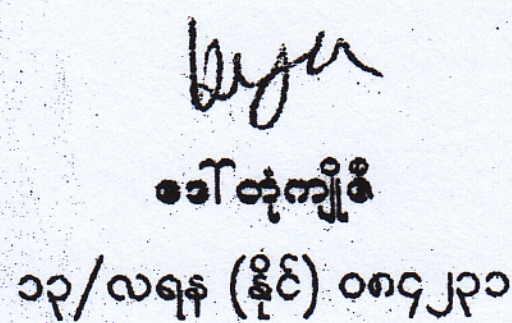 ဒေါ်တုံကျိုဇီ
၁၃/လရန (နိုင်) ၀၈၄၂၃၁